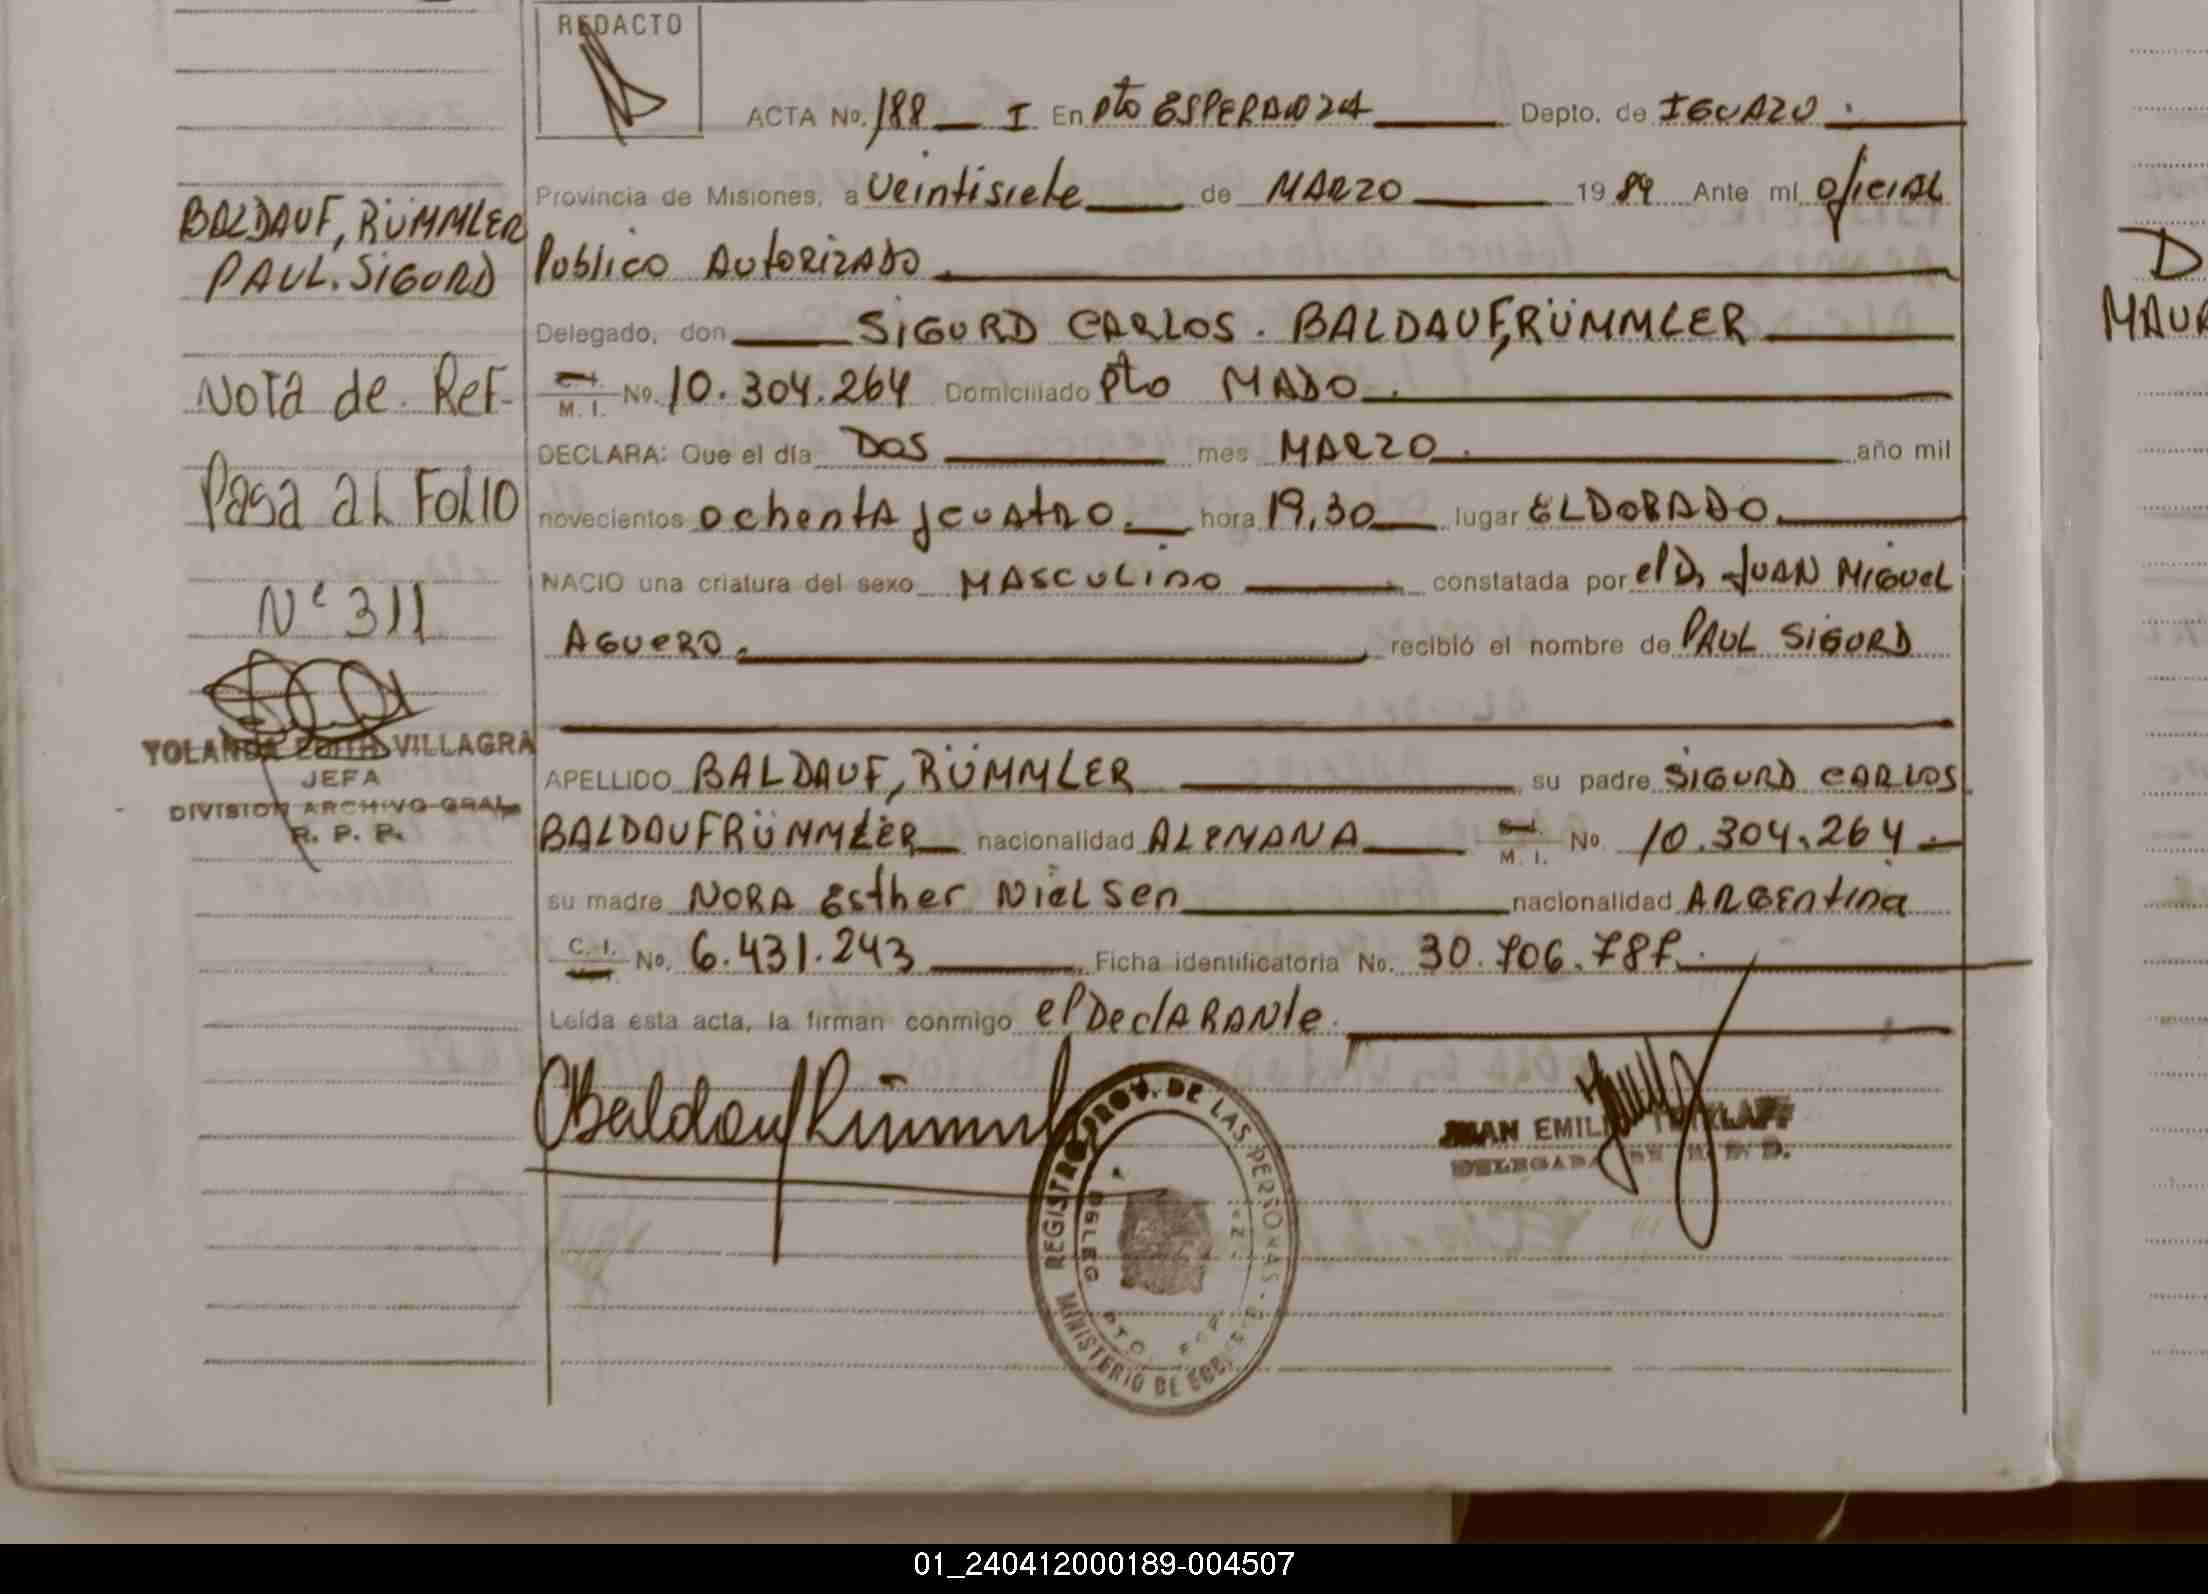 REDACTO
ACTA No. 188 I En Pto ESPERANZA Depto. de IGUAZU
BALDAUF, RÜMMLER
PAUL. SIGURD
Provincia de Misiones, a veintisiete de MARZO 1984 Ante mí oficial
Publico Autorizado
Delegado, don SIGURD CARLOS. BALDAUF,RÜMMLER
Nota de Ref-
M. I. No. 10.304.264 Domiciliado Pto MADO.
DECLARA: Que el día DOS mes MARZO. año mil
Pasa al Folio
novecientos ochenta y cuatro. hora 19,30 lugar ELDORADO.
NACIO una criatura del sexo MASCULINO constatada por el Dr JUAN MIGUEL
Nº 311
AGUERO. recibió el nombre de PAUL SIGURD
YOLANDA EDITH VILLAGRA
JEFA
DIVISION ARCHIVO GRAL
R. P. P.
APELLIDO BALDAUF, RÜMMLER su padre SIGURD CARLOS
BALDAUFRÜMMLER nacionalidad ALEMANA M. I. No. 10.304.264
su madre NORA Esther Nielsen nacionalidad ARGENTINA
C. I. No. 6.431.243 Ficha identificatoria No. 30.706.787
Leída esta acta, la firman conmigo el DeclARANTe.
REGISTRO PROV. DE LAS PERSONAS
DELEG
PTO.
MINISTERIO DE
JUAN EMILIO
01_240412000189-004507
D
MAUR